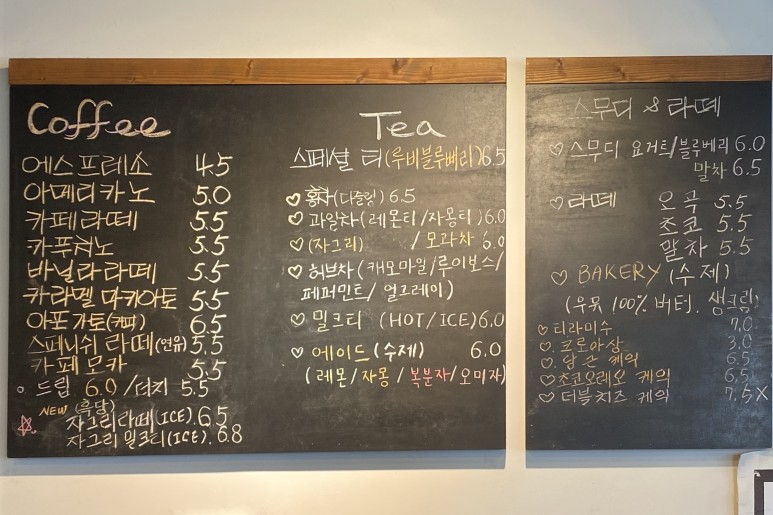 Coffee
에스프레소 4.5
아메리카노 5.0
카페라떼 5.5
카푸치노 5.5
바닐라라떼 5.5
카라멜 마키아토 5.5
아포가토(커피) 6.5
스페니쉬 라떼(연유) 5.5
카페모카 5.5
드립 6.0 /더치 5.5
NEW (흑당)
자그리라떼(ICE). 6.5
자그리 밀크티(ICE). 6.8
Tea
스페셜 티(루비블루베리)6.5
홍차(다즐링) 6.5
과일차(레몬티/자몽티)6.0
(자그리) / 모과차 6.0
허브차(캐모마일/루이보스/
페퍼민트/얼그레이)
밀크티 (HOT/ICE)6.0
에이드(수제) 6.0
(레몬/자몽/복분자/오미자)
스무디 & 라떼
스무디 요거트/블루베리 6.0
말차 6.5
라떼 오곡 5.5
초코 5.5
말차 5.5
BAKERY (수제)
(우유 100% 버터. 생크림)
티라미수 7.0
크로아상 3.0
당근 케익 6.5
초코오레오 케익 6.5
더블치즈 케익 7.5 X